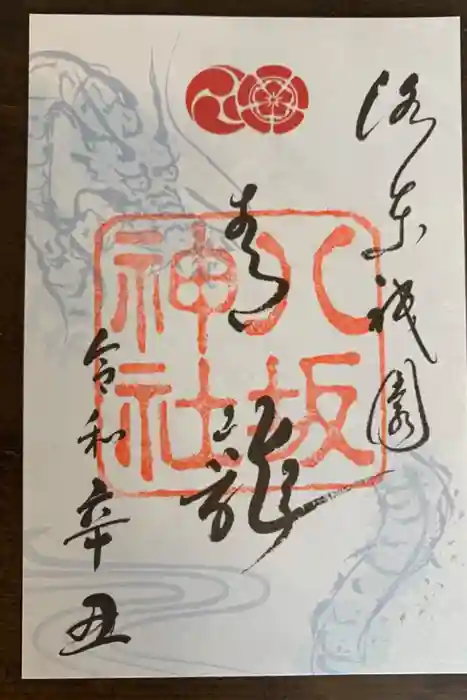 洛東祇園
青龍
令和辛丑
八坂
神社